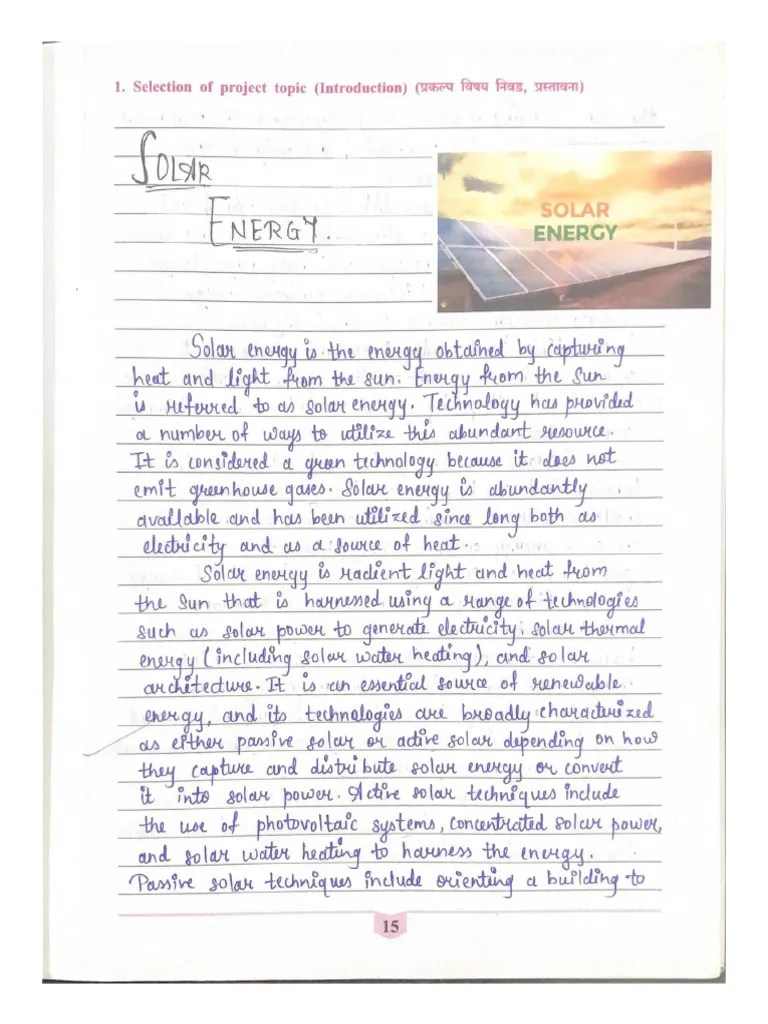 1. Selection of project topic (Introduction) (प्रकल्प विषय निवड, प्रस्तावना)
SOLAR
ENERGY.
SOLAR
ENERGY
Solar energy is the energy obtained by capturing
heat and light from the sun. Energy from the Sun
is referred to as solar energy. Technology has provided
a number of ways to utilize this abundant resource.
It is considered a green technology because it does not
emit greenhouse gases. Solar energy is abundantly
available and has been utilized since long both as
electricity and as a source of heat.
Solar energy is radient light and heat from
the Sun that is harnessed using a range of technologies
such as solar power to generate electricity, solar thermal
energy (including solar water heating), and solar
architecture. It is an essential source of renewable
energy, and its technologies are broadly characterized
as either passive solar or active solar depending on how
they capture and distribute solar energy or convert
it into solar power. Active solar techniques include
the use of photovoltaic systems, concentrated solar power,
and solar water heating to harness the energy.
Passive solar techniques include orienting a building to
15